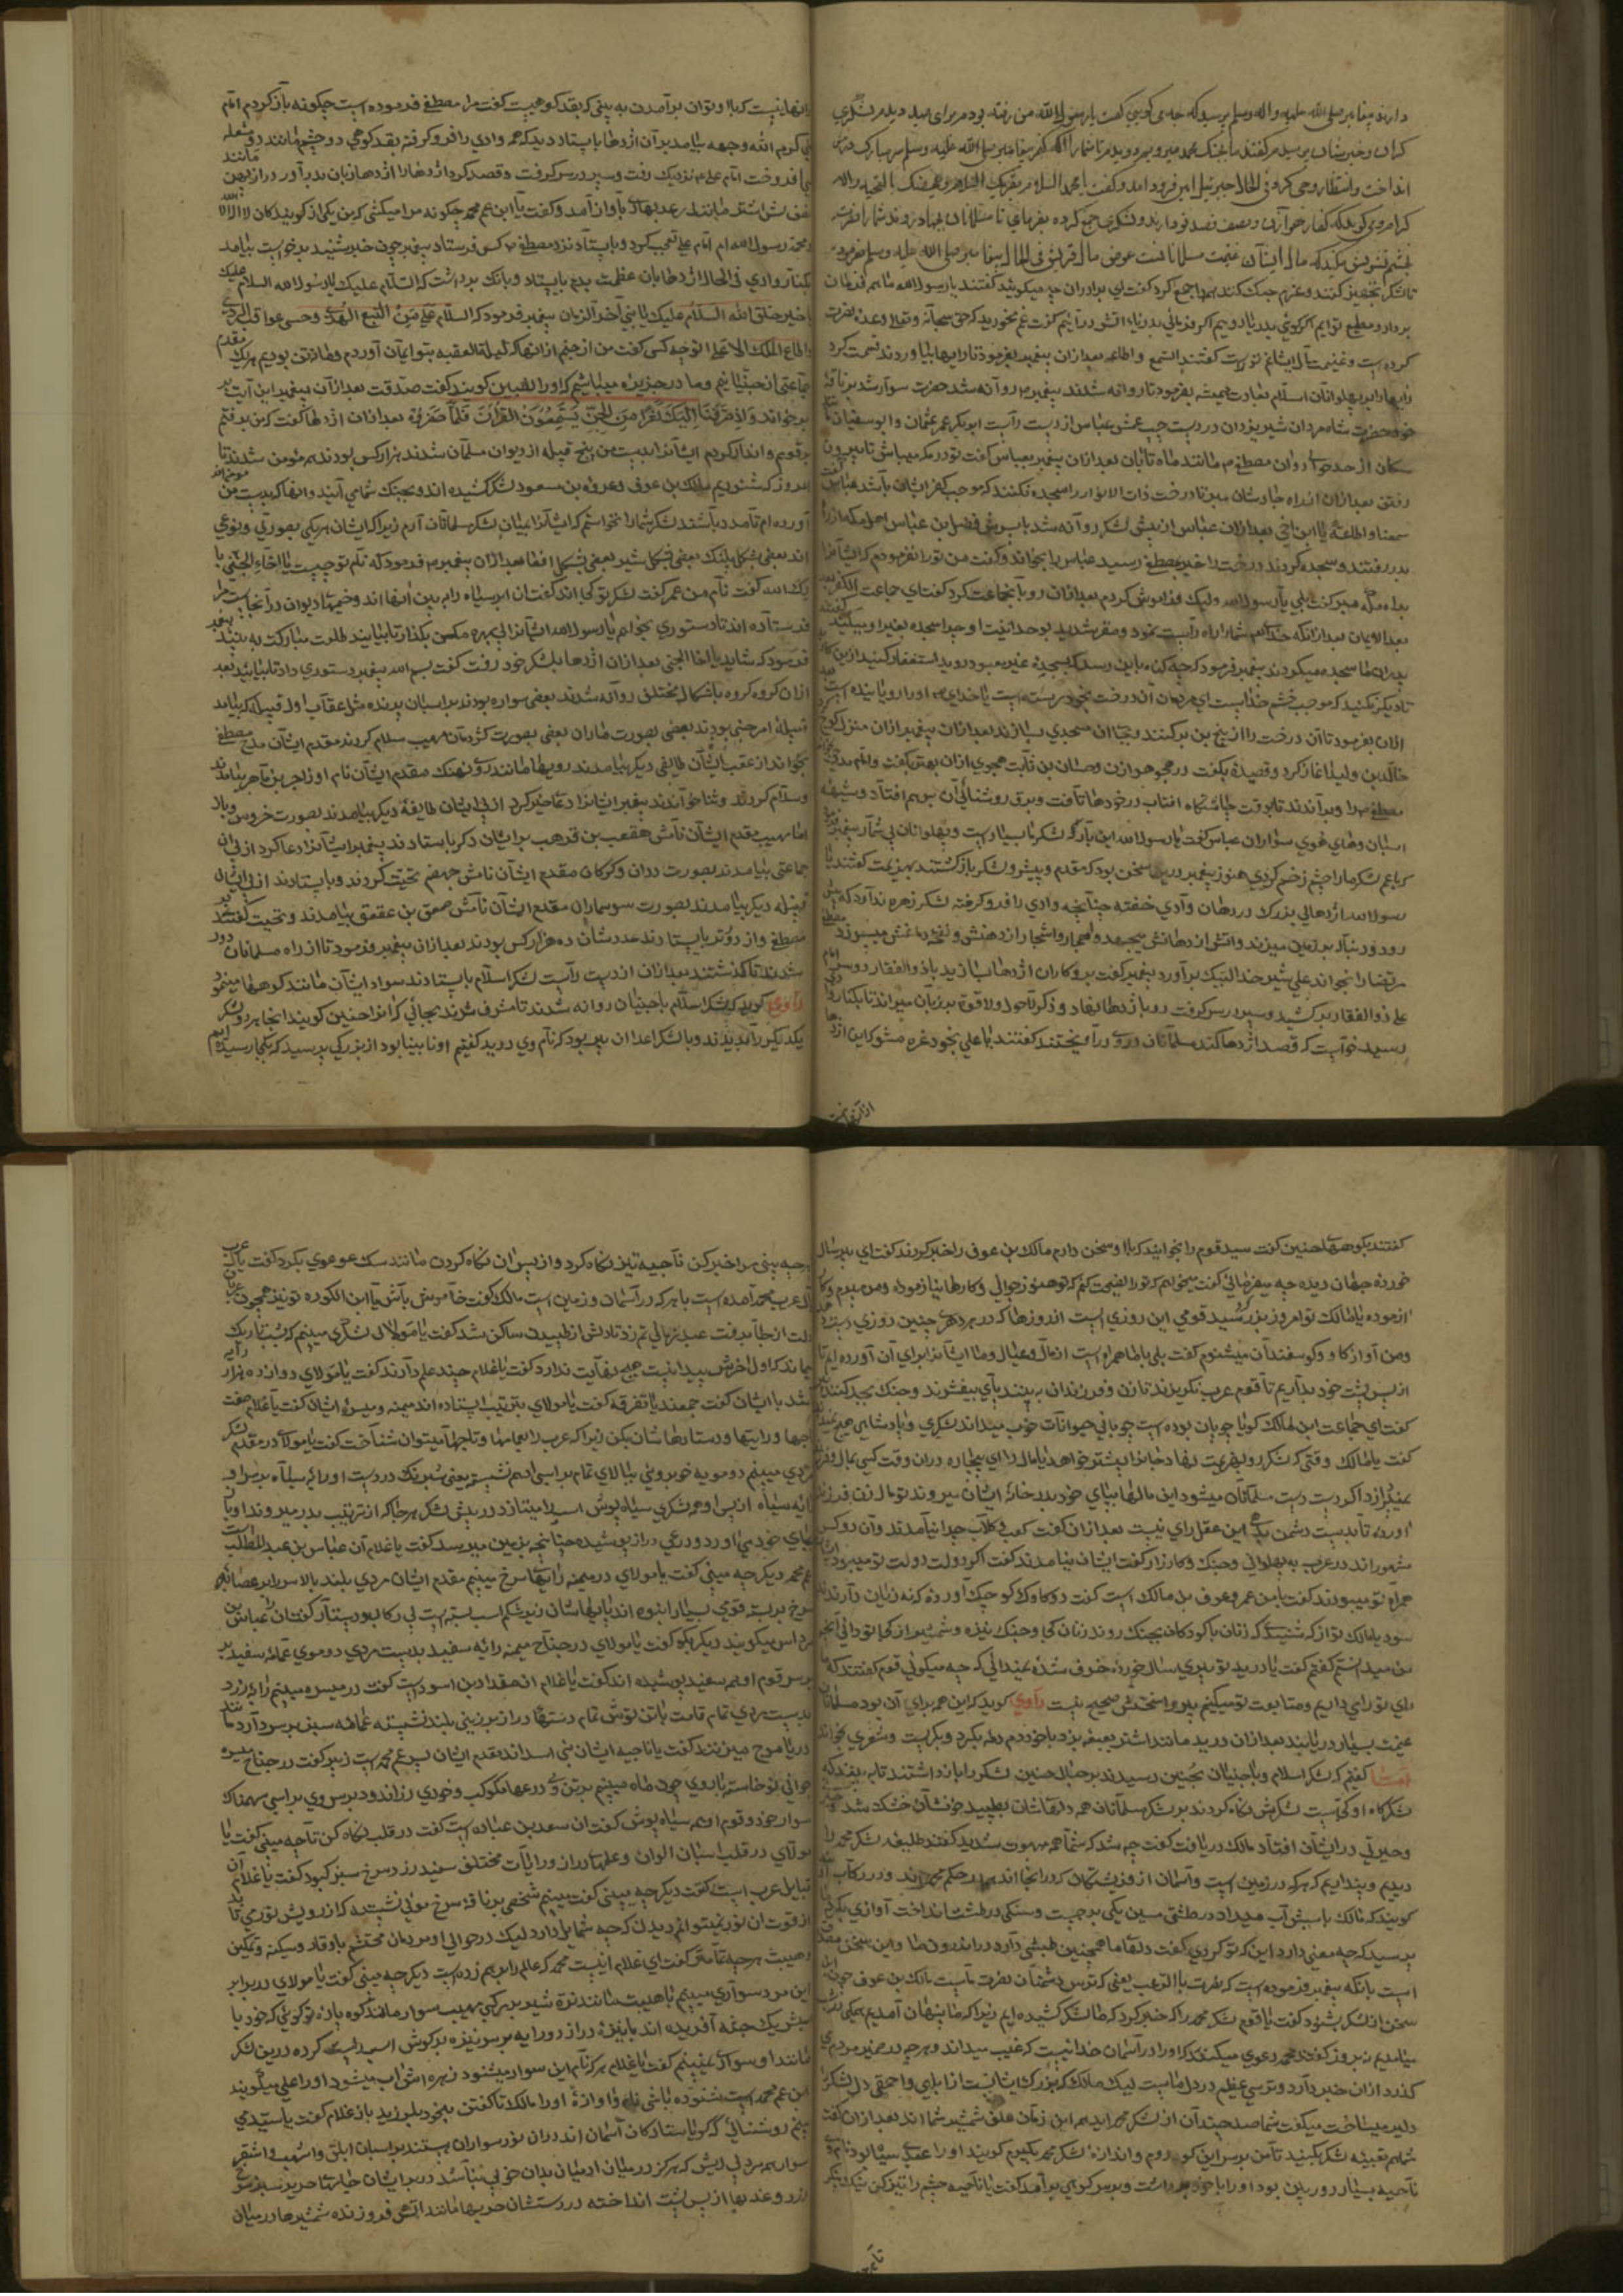 دارند پیغامبر صلی الله علیه و اله وسلم پرسید که چه می کویی کفت یا رسول الله من رفته بودم برای صید دیدم لشکری
کران و خبر ایشان پرسیدم کفتند ما بجنک محمد میرویم دویدم تا شمارا آکاه کنم پیغامبر صلی الله علیه وسلم سر مبارک در پیش
انداخت و انتظار وحی کرد فی الحال جبرئیل امین فرود امد و کفت یا محمد السلام یقریک السلام
کفار هوازن و نصف قصد تو دارند و لشکری جمع کرده بفرمای تا مسلمانان بجهاد روند شمارا نصرت
بخشم تشویش مکنید که مال ایشان غنیمت مسلمانانست عوض مال قریش فی الحال پیغامبر صلی الله علیه وسلم بفرمود
تا لشکر تجهیز کنند و عزم جنک کنند همه را جمع کرد کفت ای برادران چه میکویید کفتند یا رسول الله ما بفرمان
بردار و مطیع توایم اکر کوئی بدریا رویم اکر فرمائی بدریاء اتش در آئیم کفت غم نخورید که حق سبحانه و تعالی وعده نصرت
کرده است و غنیمت مال ایشانم نموده است کفتند السمع و الطاعه بعد ازان پیغمبر بفرمود تا رایتها بیاوردند قسمت کرد
رایتها را بر پهلوانان اسلام بعادت همیشه بفرمود تا روانه شدند پیغمبر م روانه شد حضرت سوار شد بر ناقه
خود حضرت شاه مردان شیر یزدان در دست چپ عمش عباس از دست راست ابوبکر عمر عثمان و ابو سفیان
روان مصطفی م مانند ماه تابان بعد ازان پیغمبر بعباس کفت تو در مکه میباش تا بیرون
رفتن بعد ازان از راه درخت ذات الانوار را سجده نکنند که موجب کفر ایشان باشد عباس کفت
سمعا و اطاعة یا ابن اخی بعد ازان عباس از پیش لشکر روانه شد با پسرش فضل بن عباس اهل مکه از راه
بدر رفتند و سجده کردند درخت را خبر بمصطفی رسید عباس را بخواند و کفت من تورا نفرمودم که ایشانرا
کفت بلی یا رسول الله ولیک فراموش کردم بعد ازان رو بآنجماعت کرد کفت ای جماعت
بعد الایمان بعد از آنکه خدا شمارا راه راست نمود و مقر شدید بوحدانیت او چرا سجده بغیر او میکنید
پدران ما سجده میکردند پیغمبر فرمود که چه کناه باین رسد که سجده غیر معبود روید استغفار کنید
تا دیکر نکنید که موجب خشم خداست ای مردمان آن درخت بخود رسته است یا خدای م اورا رویانیده است
الان بفرمود تا آن درخت را از بیخ بن برکنند و بجا ان مسجدی بسازند بعد ازان پیغمبر ازان منزل کوچ
خالد بن ولید اغاز کرد و قصیده بکفت در هجو هوازن و حسان بن ثابت هجوی ازان بهتر بکفت
مصطفی م را و براندند تا بوقت چاشتکاه افتاب در خودها تافت و برق روشنائی آن بر هم افتاد و شیهه
اسبان و های هوی سواران عباس کفت یا رسول الله لشکر ما بسیار است و پهلوانان بی شمار
لشکر ما را چشم زخم کردی هنوز پیغمبر درین سخن بود که مقدم و پیشرو لشکر باز کشتند بهزیمت کفتند یا
رسول الله اژدهائی بزرک در دهان وادی خفته چنانچه وادی را فرو کرفته لشکر زهره ندارد که پیش
رود و دنبال بر زمین میزند و اتش از دهانش میجهد و اشجار را از دهنش میسوزد
مرتضی را بخواند علی شیر خدا لبیک برآورد پیغمبر کفت برو کار ان اژدها بساز ید با ذو الفقار دوسر
علی ذو الفقار برکشید و سپر در سر کرفت رو باژدها نهاد و ذکر لا حول ولا قوة بر زبان میراند تا بکنار
رسید خواست که قصد اژدها کند مسلمانان در وی آویختند کفتند یا علی بخود غره مشو که این اژدها
ازان نیست
ازانها نیست که با او توان برآمدن نه بینی که بقد کوهیست کفت مرا مصطفی فرموده است چکونه باز کردم امام
علی کرم الله وجهه بیامد بر آن اژدها بایستاد دید که همه وادی را فرو کرفته بقد کوهی دو چشم مانند دو مشعله
می افروخت امام علی م نزدیک رفت و سپر در سر کرفت و قصد کرد اژدهارا اژدها زبان بدر آورد دراز پهن
باواز آمد و کفت یا ابن عم محمد چکونه مرا میکشی که من یکی از کویندکان لا اله الا الله
و محمد رسول الله ام امام علی تعجب کرد و بایستاد نزد مصطفی م کس فرستاد پیغمبر چون خبر شنید برخواست بیامد
بکنار وادی فی الحال اژدها بان عظمت بدم بایستاد و بانک برداشت که السلام علیک یا رسول الله السلام علیک
یا خیر خلق الله السلام علیک یا نبی آخر الزمان پیغمبر فرمود که السلام علی من اتبع الهدی وخشی عواقب الردی
واطاع الملک الاعلی تو چه کسی کفت من از جنم ازانها که لیلة العقبه بتو ایمان آوردم و ما از تن بودیم
جماعتی از جنیانیم و ما در جزیره میباشیم که اورا نصیبین کویند کفت صدقت بعد ازان پیغمبر این آیت
برخواند واذ صرفنا الیک نفرا من الجن یستمعون القرآن فلما حضروه بعد ازان اژدها کفت که من برفتم
بر قوم و انذار کردم ایشانرا بدست من پنج قبیله از دیوان مسلمان شدند هزار کس بودند همه مؤمن شدند تا
امروز که شنودیم مالک بن عوف و عروه بن مسعود لشکر کشیده اند و بجنک شما می آیند و انها که بدست من
آورده ام تا مدد باشند لشکر شمارا نخواستم که ایشانرا بمیان لشکر مسلمانان آرم زیرا که ایشان هر یکی بصورتی و نوعی
اند بعضی بشکل پلنک بعضی بشکل شیر بعضی بشکل افعا بعد ازان پیغمبر م فرمود که نام تو چیست یا اخاء الجنی
کفت نام من عمر کفت لشکر تو کجا اند کفت ان ابر سیاه را به بین انها اند و خیمهاء دیوان در آنجا است مرا
فرستاده اند تا دستوری بخواهم یا رسول الله ایشانرا بکذار تا بیایند طلعت مبارکت به بینند پیغمبر
فرمود که شاید یا اخا الجنی بعد ازان اژدها بلشکر خود رفت کفت بسم الله پیغمبر دستوری داد تا بیائید بعد
ازان کروه کروه باشکال مختلف روانه شدند بعضی سواره بودند بر اسبان پرنده مثل عقاب اول قبیله که بیامد
قبیله امر جنی بودند بعضی بصورت ماران بعضی بصورت کژدمان مهیب سلام کردند مقدم ایشان مدح مصطفی
بخواند از عقب ایشان طایفی دیکر بیامدند رویها مانند روی نهنک مقدم ایشان نام او زاجر بن ماهر بیامدند
وسلام کردند و ثنا خواندند پیغمبر ایشانرا دعا خیر کرد از پی ایشان طایفه دیکر بیامدند بصورت خروس
اما مهیب مقدم ایشان نامش هقعب بن قرهب برایشان ذکر بایستادند پیغمبر ایشانرا دعا کرد از پی ان
جماعتی بیامدند بصورت ددان و کرکان مقدم ایشان نامش جهضم تحیت کردند و بایستادند از پی ایشان
قبیله دیکر بیامدند بصورت سوسماران مقدم ایشان نامش صعق بن عقعق بیامدند و تحیت کفتند بر
مصطفی و از دورتر بایستادند عددشان ده هزار کس بودند بعد ازان پیغمبر فرمود تا از راه مسلمانان دور
شدند تا کذشتند بعد ازان از دست راست لشکر اسلام بایستادند سواد ایشان مانند کوهها مینمود
راوی کوید که لشکر اسلام با جنیان روانه شدند تا مشرف شدند بجائی که انرا حنین کویند انجا هر دو لشکر
یکدیکر را بدیدند و با لشکر اعدا ان پیر بود که نام وی درید کفتیم او نا بینا بود از بزرکی پرسید که بکجا رسیده ایم
کفتند بکوههاء حنین کفت سید قوم را بخوانید که با او سخن دارم مالک بن عوف را خبر کردند کفت ای پیر سال
خورده جهان دیده چه میفرمائی کفت میخواهم که تورا نصیحت کنم که تو هنوز جوانی و کارها نیازموده و من پیرم و کارها
ازموده یا مالک تو امروز بزرک و سید قومی این روزی است از روزها که در هر دهری چنین روزی
ومن آواز کاو و کوسفندان میشنوم کفت بلی با ما همراه است از مال و عیال و ما ایشانرا برای آن آورده ایم تا
از پس پشت خود بداریم تا قوم عرب نکریزند تا زن و فرزندان به بینند پای بیفشرند و جنک بجد کنند
کفت ای جماعت این مالک کویا چوپان بوده است چوپانی حیوانات خوب میداند لشکری و پادشاهی هیچ نمیداند
کفت یا مالک وقتی که لشکر رو بهزیمت نهاد جانرا بیشتر خواهد یا مال را ای بیچاره دران وقت کسی بمال و فرزند
نمیپردازد اکر دست دست مسلمانان میشود این مالها بپای خود بدر خانهٔ ایشان میروند تو مال زن فرزند
آورده تا بدست دشمن بدهی این عقل رای نیست بعد ازان کفت کعب و کلاب چرا نیامدند وآن دو کس
مشهور اند در عرب به پهلوانی و جنک و کارزار کفت ایشان نیامدند کفت اکر دولت دولت تو میبود
همراه تو میبودند کفت یا من عمرو عوف بن مالک است کفت دو کاوک کوچک آورده که نه زیان دارند
سود یا مالک تو از که شنیده که زنان با کودکان بجنک روند زنان کجا و جنک نیزه و شمشیر از کجا تو دانی آنچه
من میدانستم کفتم کفت یا درید تو پیری سال خورده خرف شده نمیدانی که چه میکوئی قوم کفتند که ما
رای تو رای داریم و متابعت تو میکنیم پیر و سخنش صحیح نیست راوی کوید که این همه برای آن بود مسلمانان
غنیمت بسیار در یابند بعد ازان درید مانند اشتر نعره بزد با خود دمدمه بکرد و بکریست و شعری بخواند
کفتیم که لشکر اسلام و با جنیان بحنین رسیدند بر جبال حنین لشکر را باز داشتند تا به بینند که
لشکرکاه او کجاست لشکرش نکاه کردند بر لشکر مسلمانان همه دلهاشان بطپید خونشان خشک شد
وحیرتی در ایشان افتاد مالک دریافت کفت چه شد که شما همه مبهوت شدید کفتند طلیعه لشکر محمد را
دیدیم و پنداریم که هر که در زمین است و آسمان از فرشتکان که در آنجا اند همه در حکم محمد اند
کویند که مالک با سپش آب میداد در طشتی مسین یکی برجست و سنکی در طشت انداخت آوازی بکرد
پرسید که چه معنی دارد این که تو کردی کفت دلهاء ما همچنین طپشی دارد در اندرون ما و این سخن
است بانکه پیغمبر فرموده است که نصرت بالرعب یعنی که ترس دشمنان نصرت ماست مالک بن عوف چون این
سخن از لشکر بشنود کفت یا قوم لشکر محمد را که خبر کرد که ما لشکر کشیده ایم زیرا که ما پنهان آمدیم
میامدیم نیروز کفتند محمد دعوی میکند که اورا در آسمان خدائیست که غیب میداند و هر چه در ضمیر مردم
کذرد ازان خبر دارد و ترسی عظیم در دل ماست لیک مالک که بزرک ایشانست از ابلهی و احمقی دل لشکر را
دلیر میساخت میکفت شما صد چندان از لشکر محمد اید هم این زمان علف شمشیر شما اند بعد ازان کفت
شما هم تعبیه لشکر بکنید تا من بر سر این کوه روم و اندازه لشکر محمد بکیرم کویند اورا عبدی سیاه بود نام وی
ناحیه بسیار دوربین بود اورا با خود برداشت و بر سر کوهی برآمد کفت یا ناحیه چشم را تیز کن نیک بنکر
تا چه
هر چه بینی مرا خبر کن ناحیه تیز نکاه کرد و از پس ان نکاه کردن مانند سک عوعوی بکرد کفت بالله
که عرب محمد آمده است با هر که در آسمان و زمین است مالک کفت خاموش باش یا ابن الکوره تو نیز همچون
دلت از جا برفت عبد زمانی تم زد تا دلش از طپیدن ساکن شد کفت یا مولای لشکری میبینم که بشب تاریک
ماند که اول آخرش پیدا نیست هیچ نهایت ندارد کفت یا غلام چند علم دارند کفت یا مولای دوازده هزار رایه
باشد با ایشان کفت جمعند یا تفرقه کفت یا مولای بترتیب ایستاده اند میمنه و میسره ایشان کفت یا غلام صفت
علمها و رایتها و دستارهاشان بکن زیرا که عرب را بعمامها و تاجها میتوان شناخت کفت یا مولای در مقدم لشکر
مردی میبینم دو مویه خوبروئی ببالای تمام بر اسبی ادهم نشسته یعنی شبرنک در دست او رایه سیاه بر سر او
رایه سیاه از پس او همه لشکری سیاه پوش اسب را میتازد در پیش لشکر هر جا که از ترتیب بدر میروند اورا
بجای خود می آورد و درعی دراز پوشیده چنانچه بزمین میرسد کفت یا غلام آن عباس بن عبد المطلب است
عم محمد دیکر چه میبینی کفت یا مولای در میمنه رایتهاء سرخ میبینم مقدم ایشان مردی بلند بالا سر را بر عصابه
سرخ بربسته قومی بسیار انبوه اند پایهاشان زیر شکم اسب بسته است بی رکاب و دستار کفت ان عباس بن
مرداس میکویند دیکر بکو کفت یا مولای در جناح میمنه رایه سفید بدست مردی دو موی عمامه سفید بر
سر قوم او همه سفید پوشیده اند کفت یا غلام ان مقداد بن اسود است کفت در میسره میبینم رایه زرد
بدست مردی تمام قامت با تن توش تمام دستها دراز بر زینی بلند نشسته عمامه سبز بر سر دارد مانند
دریا موج میزنند کفت یا ناحیه ایشان بنی اسد اند مقدم ایشان پسر عم محمد است زبیر کفت در جناح میسره
جوانی نو خاسته با روی چون ماه میبینم بر تن وی درعهاء مکوکب و خودی زراندود بر سر وی بر اسبی سهمناک
سوار خود و قوم او همه سیاه پوش کفت ان سعد بن عباده است کفت در قلب نکاه کن تا چه میبینی کفت یا
مولای در قلب اسبان الوان و علمهاء دراز و رایات مختلف سفید زرد سرخ سبز کبود کفت یا غلام آن
قبایل عرب است کفت دیکر چه میبینی کفت میبینم شخصی بر ناقه سرخ موی نشسته که از رویش نوری تابد
از قوت ان نور نمیتوانم دیدن که چه شمایل دارد لیک در حوالی او مردمان محتشم با وقار و سکینه و تمکین
وهیبت هر چه تمامتر کفت ای غلام اینست محمد که عالم را بهم زده است دیکر چه میبینی کفت یا مولای در برابر
این مرد سواری میبینم با هیبت مانند نره شیر بر مرکبی مهیب سوار مانند کوه پاره تو کوئی که خود با
اسپش یک جثه آفریده اند با نیزهٔ دراز و رایه بر سر نیزه
مانند او سواری نمیبینم کفت یا غلام هر که نام این سوار میشنود زهره اش آب میشود اورا علی میکویند
ابن عم محمد است شنوده باشی نام و آوازهٔ اورا مالک تا کفتن بخود بلرزید باز غلام کفت یا سیدی می
بینم روشنائی که کویا ستارکان آسمان اند دران نور سواران هستند بر اسبان ابلق و اشهب و اشقر
سوار همه مردان بی ریش که هرکز در میان ادمیان بدان خوبی نباشد در بر ایشان جامهاء حریر سبز سرخ
زرد و عذبها از پس پشت انداخته در دستشان حربها مانند آتش فروزنده شمشیرها در میان